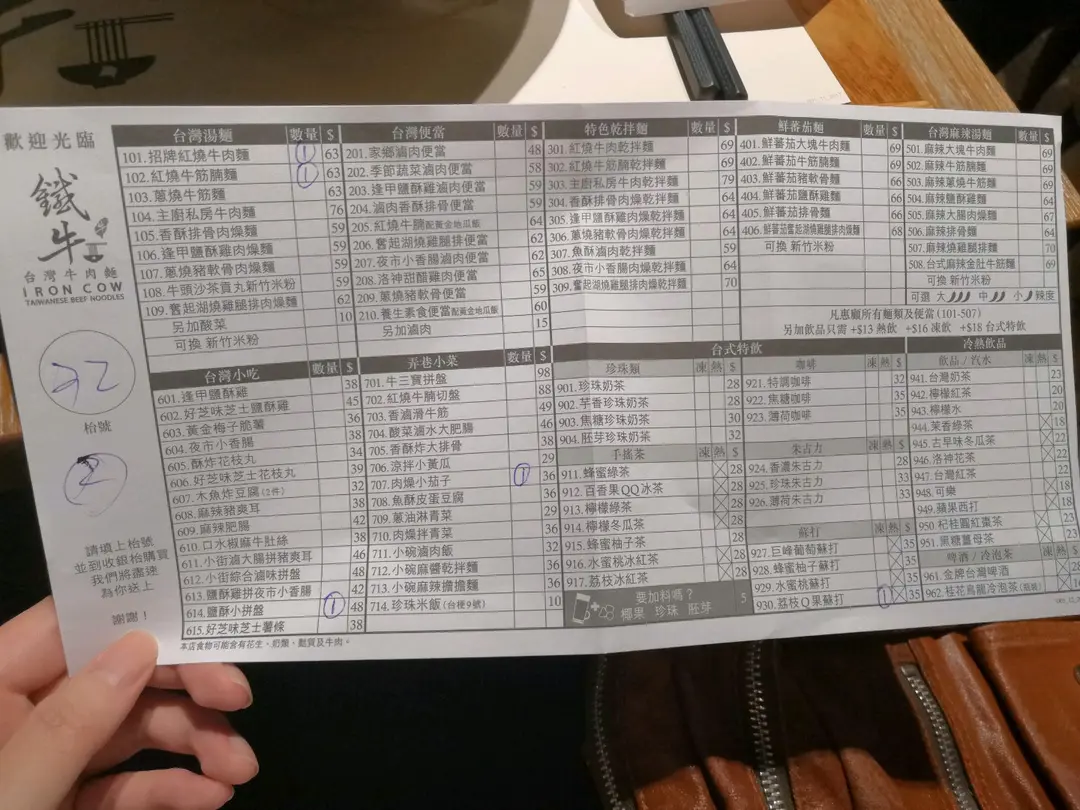 歡迎光臨
鐵牛
台灣牛肉麵
IRON COW
TAIWANESE BEEF NOODLES
22
枱號
2
請填上枱號
並到收銀枱購買
我們將盡速
為你送上
謝謝！
台灣湯麵 數量 $
101.招牌紅燒牛肉麵 1 63
102.紅燒牛筋腩麵 1 63
103.蔥燒牛筋麵 63
104.主廚私房牛肉麵 76
105.香酥排骨肉燥麵 59
106.逢甲鹽酥雞肉燥麵 59
107.蔥燒豬軟骨肉燥麵 59
108.牛頭沙茶貢丸新竹米粉 59
109.奮起湖燒雞腿排肉燥麵 62
另加酸菜 10
可換 新竹米粉
台灣便當 數量 $
201.家鄉滷肉便當 48
202.季節蔬菜滷肉便當 58
203.逢甲鹽酥雞滷肉便當 59
204.滷肉香酥排骨便當 59
205.紅燒牛腩配黃金地瓜飯 64
206.奮起湖燒雞腿排便當 62
207.夜市小香腸滷肉便當 62
208.洛神甜醋雞肉便當 65
209.蔥燒豬軟骨便當 59
210.養生素食便當配黃金地瓜飯 60
另加滷肉 15
特色乾拌麵 數量 $
301.紅燒牛肉乾拌麵 69
302.紅燒牛筋腩乾拌麵 69
303.主廚私房牛肉乾拌麵 79
304.香酥排骨肉燥乾拌麵 64
305.逢甲鹽酥雞肉燥乾拌麵 64
306.蔥燒豬軟骨肉燥乾拌麵 64
307.魚酥滷肉乾拌麵 64
308.夜市小香腸肉燥乾拌麵 64
309.奮起湖燒雞腿排肉燥乾拌麵 70
鮮蕃茄麵 數量 $
401.鮮蕃茄大塊牛肉麵 69
402.鮮蕃茄牛筋腩麵 69
403.鮮蕃茄豬軟骨麵 66
404.鮮蕃茄鹽酥雞麵 66
405.鮮蕃茄排骨麵 66
406.鮮蕃茄奮起湖燒雞腿排肉燥麵 68
可換 新竹米粉
台灣麻辣湯麵 數量 $
501.麻辣大塊牛肉麵 69
502.麻辣牛筋腩麵 69
503.麻辣蔥燒牛筋麵 69
504.麻辣鹽酥雞麵
505.麻辣大腸肉燥麵 67
506.麻辣排骨麵 64
507.麻辣燒雞腿排麵 70
508.台式麻辣金肚牛筋麵 69
可換 新竹米粉
可選 大 中 小 辣度
凡惠顧所有麵類及便當(101-507)
另加飲品只需 +$13 熱飲 +$16 凍飲 +$18 台式特飲
台灣小吃 數量 $
601.逢甲鹽酥雞 38
602.好芝味芝士鹽酥雞 45
603.黃金梅子脆薯 36
604.夜市小香腸 38
605.酥炸花枝丸 34
606.好芝味芝士花枝丸 39
607.木魚炸豆腐(2件) 32
608.麻辣豬爽耳 38
609.麻辣肥腸 42
610.口水椒麻牛肚絲 38
611.小街滷大腸拼豬爽耳 46
612.小街綜合滷味拼盤 48
613.鹽酥雞拼夜市小香腸 48
614.鹽酥小拼盤 1 48
615.好芝味芝士薯條 38
弄巷小菜 數量 $
701.牛三寶拼盤 98
702.紅燒牛腩切盤 88
703.香滷滑牛筋 49
704.酸菜滷水大肥腸 46
705.香酥炸大排骨 38
706.涼拌小黃瓜 29
707.肉燥小茄子 1 36
708.魚酥皮蛋豆腐 36
709.蔥油淋青菜 29
710.肉燥拌青菜 36
711.小碗滷肉飯 32
712.小碗麻醬乾拌麵 42
713.小碗麻辣擔擔麵 42
714.珍珠米飯(台梗9號) 10
台式特飲
珍珠類 凍 熱 $
901.珍珠奶茶 28
902.芋香珍珠奶茶 28
903.焦糖珍珠奶茶 30
904.胚芽珍珠奶茶 32
手搖茶 凍 熱 $
911.蜂蜜綠茶 28
912.百香果QQ冰茶 28
913.檸檬綠茶 28
914.檸檬冬瓜茶
915.蜂蜜柚子茶 28
916.水蜜桃冰紅茶 28
917.荔枝冰紅茶 28
要加料嗎？
椰果 珍珠 胚芽 5
咖啡 凍 熱 $
921.特調咖啡 32
922.焦糖咖啡 35
923.薄荷咖啡 35
朱古力 凍 熱 $
924.香濃朱古力 28
925.珍珠朱古力 33
926.薄荷朱古力 33
蘇打 凍 熱 $
927.巨峰葡萄蘇打 35
928.蜂蜜柚子蘇打 35
929.水蜜桃蘇打 35
930.荔枝Q果蘇打 1 35
冷熱飲品
飲品/汽水 凍 熱 $
941.台灣奶茶 23
942.檸檬紅茶 20
943.檸檬水 20
944.茉香綠茶 18
945.古早味冬瓜茶 22
946.洛神花茶
947.台灣紅茶 22
948.可樂 18
949.蘋果西打 18
950.杞桂圓紅棗茶 23
951.黑糖薑母茶 23
啤酒/冷泡茶 凍 熱 $
961.金牌台灣啤酒 28
962.桂花烏龍冷泡茶(瓶裝) 16
本店食物可能含有花生、奶類、麩質及牛肉。